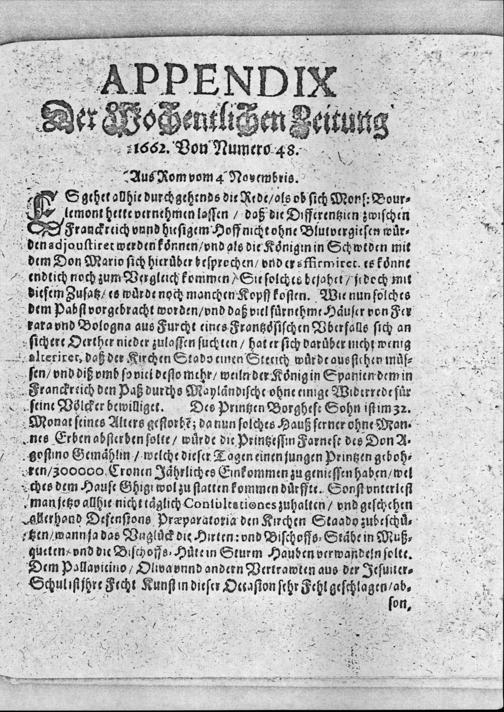 APPENDIX
Der Wochentlichen Zeitung
1662. Von Numero 48.
Aus Rom vom 4 Novembris.
ES gehet allhie durchgehends die Rede/als ob sich Mons: Bour-
lemont hette vernehmen lassen / daß die Differentzien zwischen
Franckreich vnnd hiesigem Hoff nicht ohne Blutvergiesen wür-
den adjoustiret werden können/vnd als die Königin in Schweden mit
dem Don Mario sich hierüber besprochen/vnd er affirmiret, es könne
endtlich noch zum Vergleich kommen/ Sie solches bejahet/jedoch mit
diesem Zusatz/es würde noch manchen Kopff kosten. Wie nun solches
dem Pabst vorgebracht worden/vnd daß viel fürnehme Häuser von Fer
rara vnd Bologna aus Furcht eines Frantzösischen Vberfalls sich an
sichere Oerther nieder zulassen suchten/hat er sich darüber nicht wenig
alteriret, daß der Kirchen Stado einen Streich würde ausstehen müs-
sen/vnd diß vmb so viel desto mehr/weiln der König in Spanien dem in
Franckreich den Paß durchs Mayländische ohne einige Widerrede für
seine Völcker bewilliget. Des Printzen Borghese Sohn ist im 32.
Monat seines Alters gestorbẽ; da nun solches Hauß ferner ohne Man-
nes Erben absterben solte/ würde die Printzessin Farnese des Don A-
gostino Gemählin/welche dieser Tagen einen jungen Printzen geboh-
ren/300000. Cronen Jährliches Einkommen zu geniessen haben/wel
ches dem Hause Ghigi wol zu statten kommen dürffte. Sonst vnterlest
man jetzo allhie nicht täglich Consultationes zuhalten/ vnd geschehen
allerhand Defensions Præparatoria den Kirchen Staado zubeschü-
tzen/wann ja das Vnglück die Hirten: vnd Bischoffs: Stäbe in Muß-
queten/vnd die Bischoffs: Hüte in Sturm Hauben verwandeln solte.
Dem Pallavicino / Oliva vnnd andern Vertrawten aus der Jesuiter-
Schul ist jhre Fecht Kunst in dieser Occasion sehr Fehl geschlagen/ab-
son,